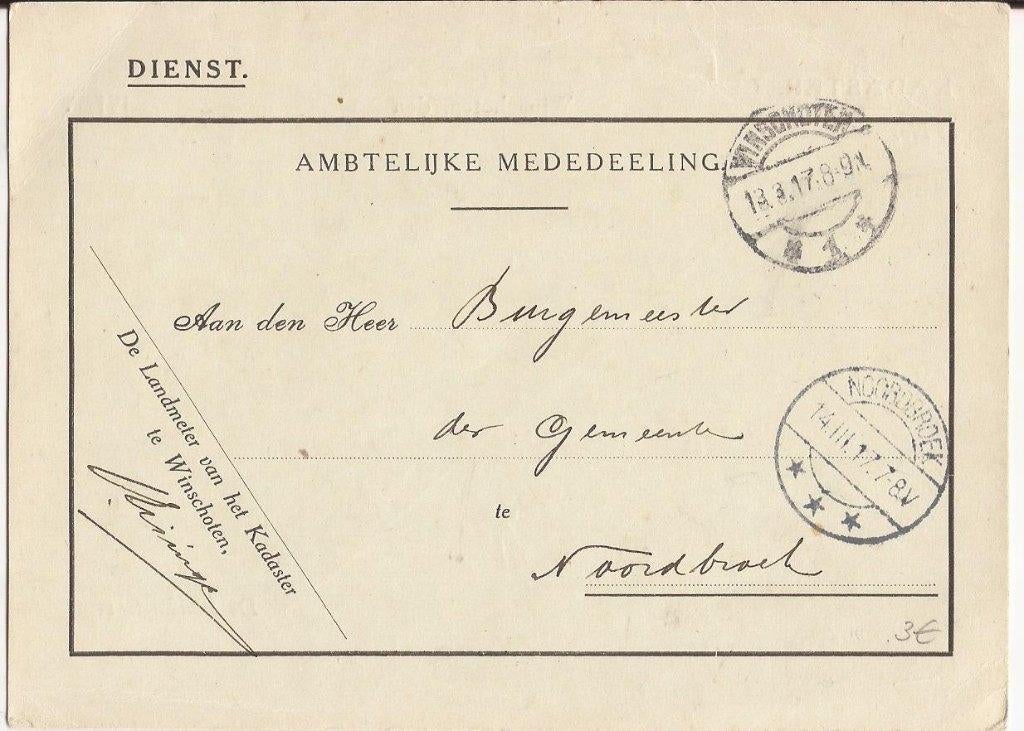 DIENST.
AMBTELIJKE MEDEDEELING.
WINSCHOTEN
13.3.17.8-9N.
1
Aan den Heer Burgemeester
der Gemeente
te
Noordbroek
NOORDBROEK
14.III.17.7-8V
De Landmeter van het Kadaster
te Winschoten,
3€